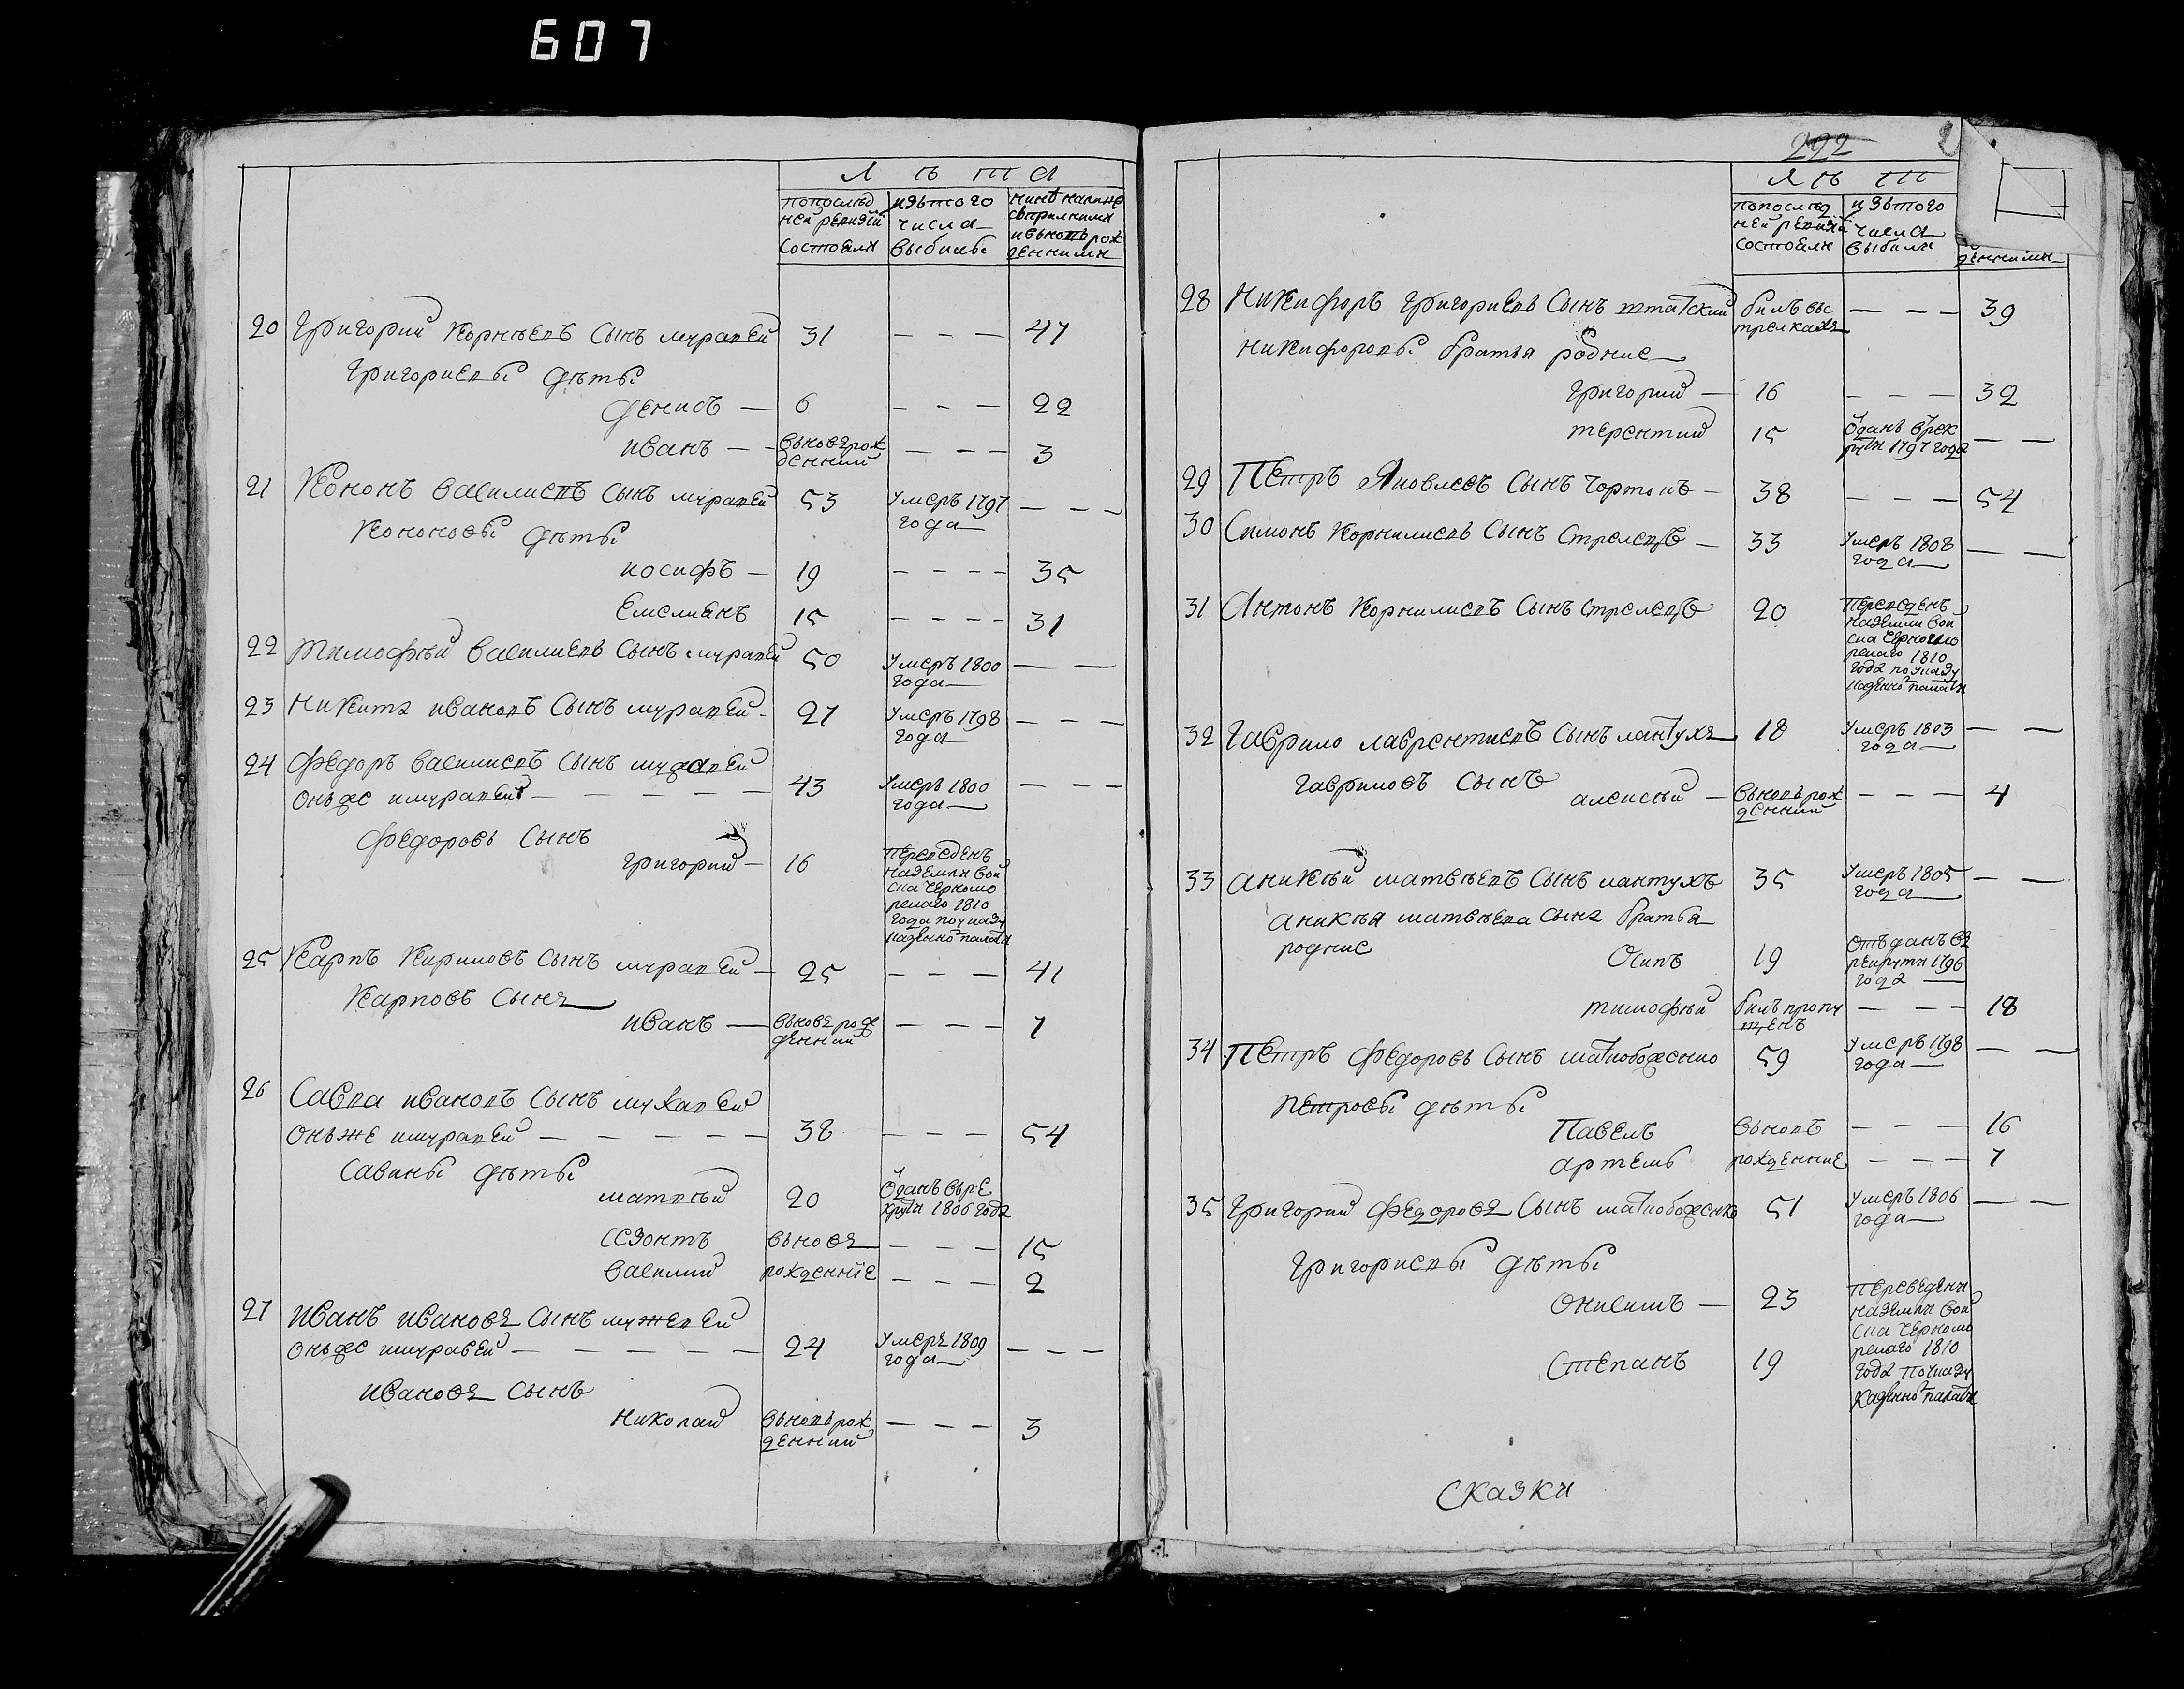 607
Л ѣ т а
попослѣд изътого нинѣ налице
ней ревизіи числа съприлними
состояли выбыли ивьновьрож
денними
20 Григорий Корнѣевъ Сынъ муравей 31 — — — 47
Григориевы дѣты
денисъ — 6 — — — 22
иванъ — вьноворож
денний — — — 3
21 Кононъ василиевъ Сынъ муравей 53 умеръ 1797
года — — —
Кононовы дѣты
иосифъ — 19 — — — — 35
Емелианъ 15 — — — — 31
22 тимофѣй василиевъ Сынъ муравей 50 умеръ 1800
года — —
23 никита ивановъ Сынъ муравей 27 умеръ 1798
года — — —
24 федоръ василиевъ Сынъ
оньже имуравей — — — — — 43 умеръ 1800
года — — —
федоровъ Сынъ
григорий — 16 переведенъ
наземли вой
ска черномо
рскаго 1810
года поуказу
казенной палати
25 Карпъ Кириловъ Сынъ муравей — 25 — — — 41
Карповъ Сынъ
иванъ — вьноворож
денний — — — 7
26 Савка ивановъ Сынъ
оньже имуравей — — — — — 38 — — — 54
Савины дѣты
матвѣй 20 Отданъ върек
рути 1806 года
Созонтъ вьновъ — — — 15
василий рожденние — — — 2
27 иванъ ивановъ Сынъ
оньже имуравей — — — — — 24 умеръ 1809
года — — —
ивановъ Сынъ
николай вьновьрож
денний — — — 3
222
Л ѣ т
попослѣд изътого
ней ревизій числа
состояли выбили
денними
28 Никифоръ григориевъ Сынъ билъвъс
трелкахъ — — — 39
никифоровы братья родние
григорий — 16 — — — 32
терентий 15 Отданъ врек
рути 1797 года — —
29 Петръ Яковлевъ Сынъ Чортокъ — 38 — — — 54
30 Симонъ Корнилиевъ Сынъ Стрелецъ — 33 умеръ 1808
года — —
31 Антонъ Корнилиевъ Сынъ Стрелецъ 20 переведенъ
наземли вой
ска черномо
рскаго 1810
года поуказу
казенной палати
32 Гаврило лаврентиевъ Сынъ лантухъ 18 умеръ 1803
года — —
гавриловъ Сынъ
алексѣй — вьновьрож
денний — — — 4
33 аникѣй матвѣевъ Сынъ лантухъ 35 умеръ 1805
года — —
аникѣя матвѣева Сына братья
родние
Осипъ 19 Отъданъ въ
рекрути 1796
года
тимофѣй билъ пропу
щенъ — — — 18
34 Петръ федоровъ Сынъ матнобоженко 59 умеръ 1798
года — —
петровы дѣты
Павелъ вьновъ — — — 16
артемъ рожденние — — — 7
35 Григорий федоровъ Сынъ матнобоженко 51 умеръ 1806
года — —
Григориевы дѣты
Онисимъ — 23 переведени
наземли вой
ска черномо
рскаго 1810
Степанъ 19 года поуказу
казенной палати
Сказки